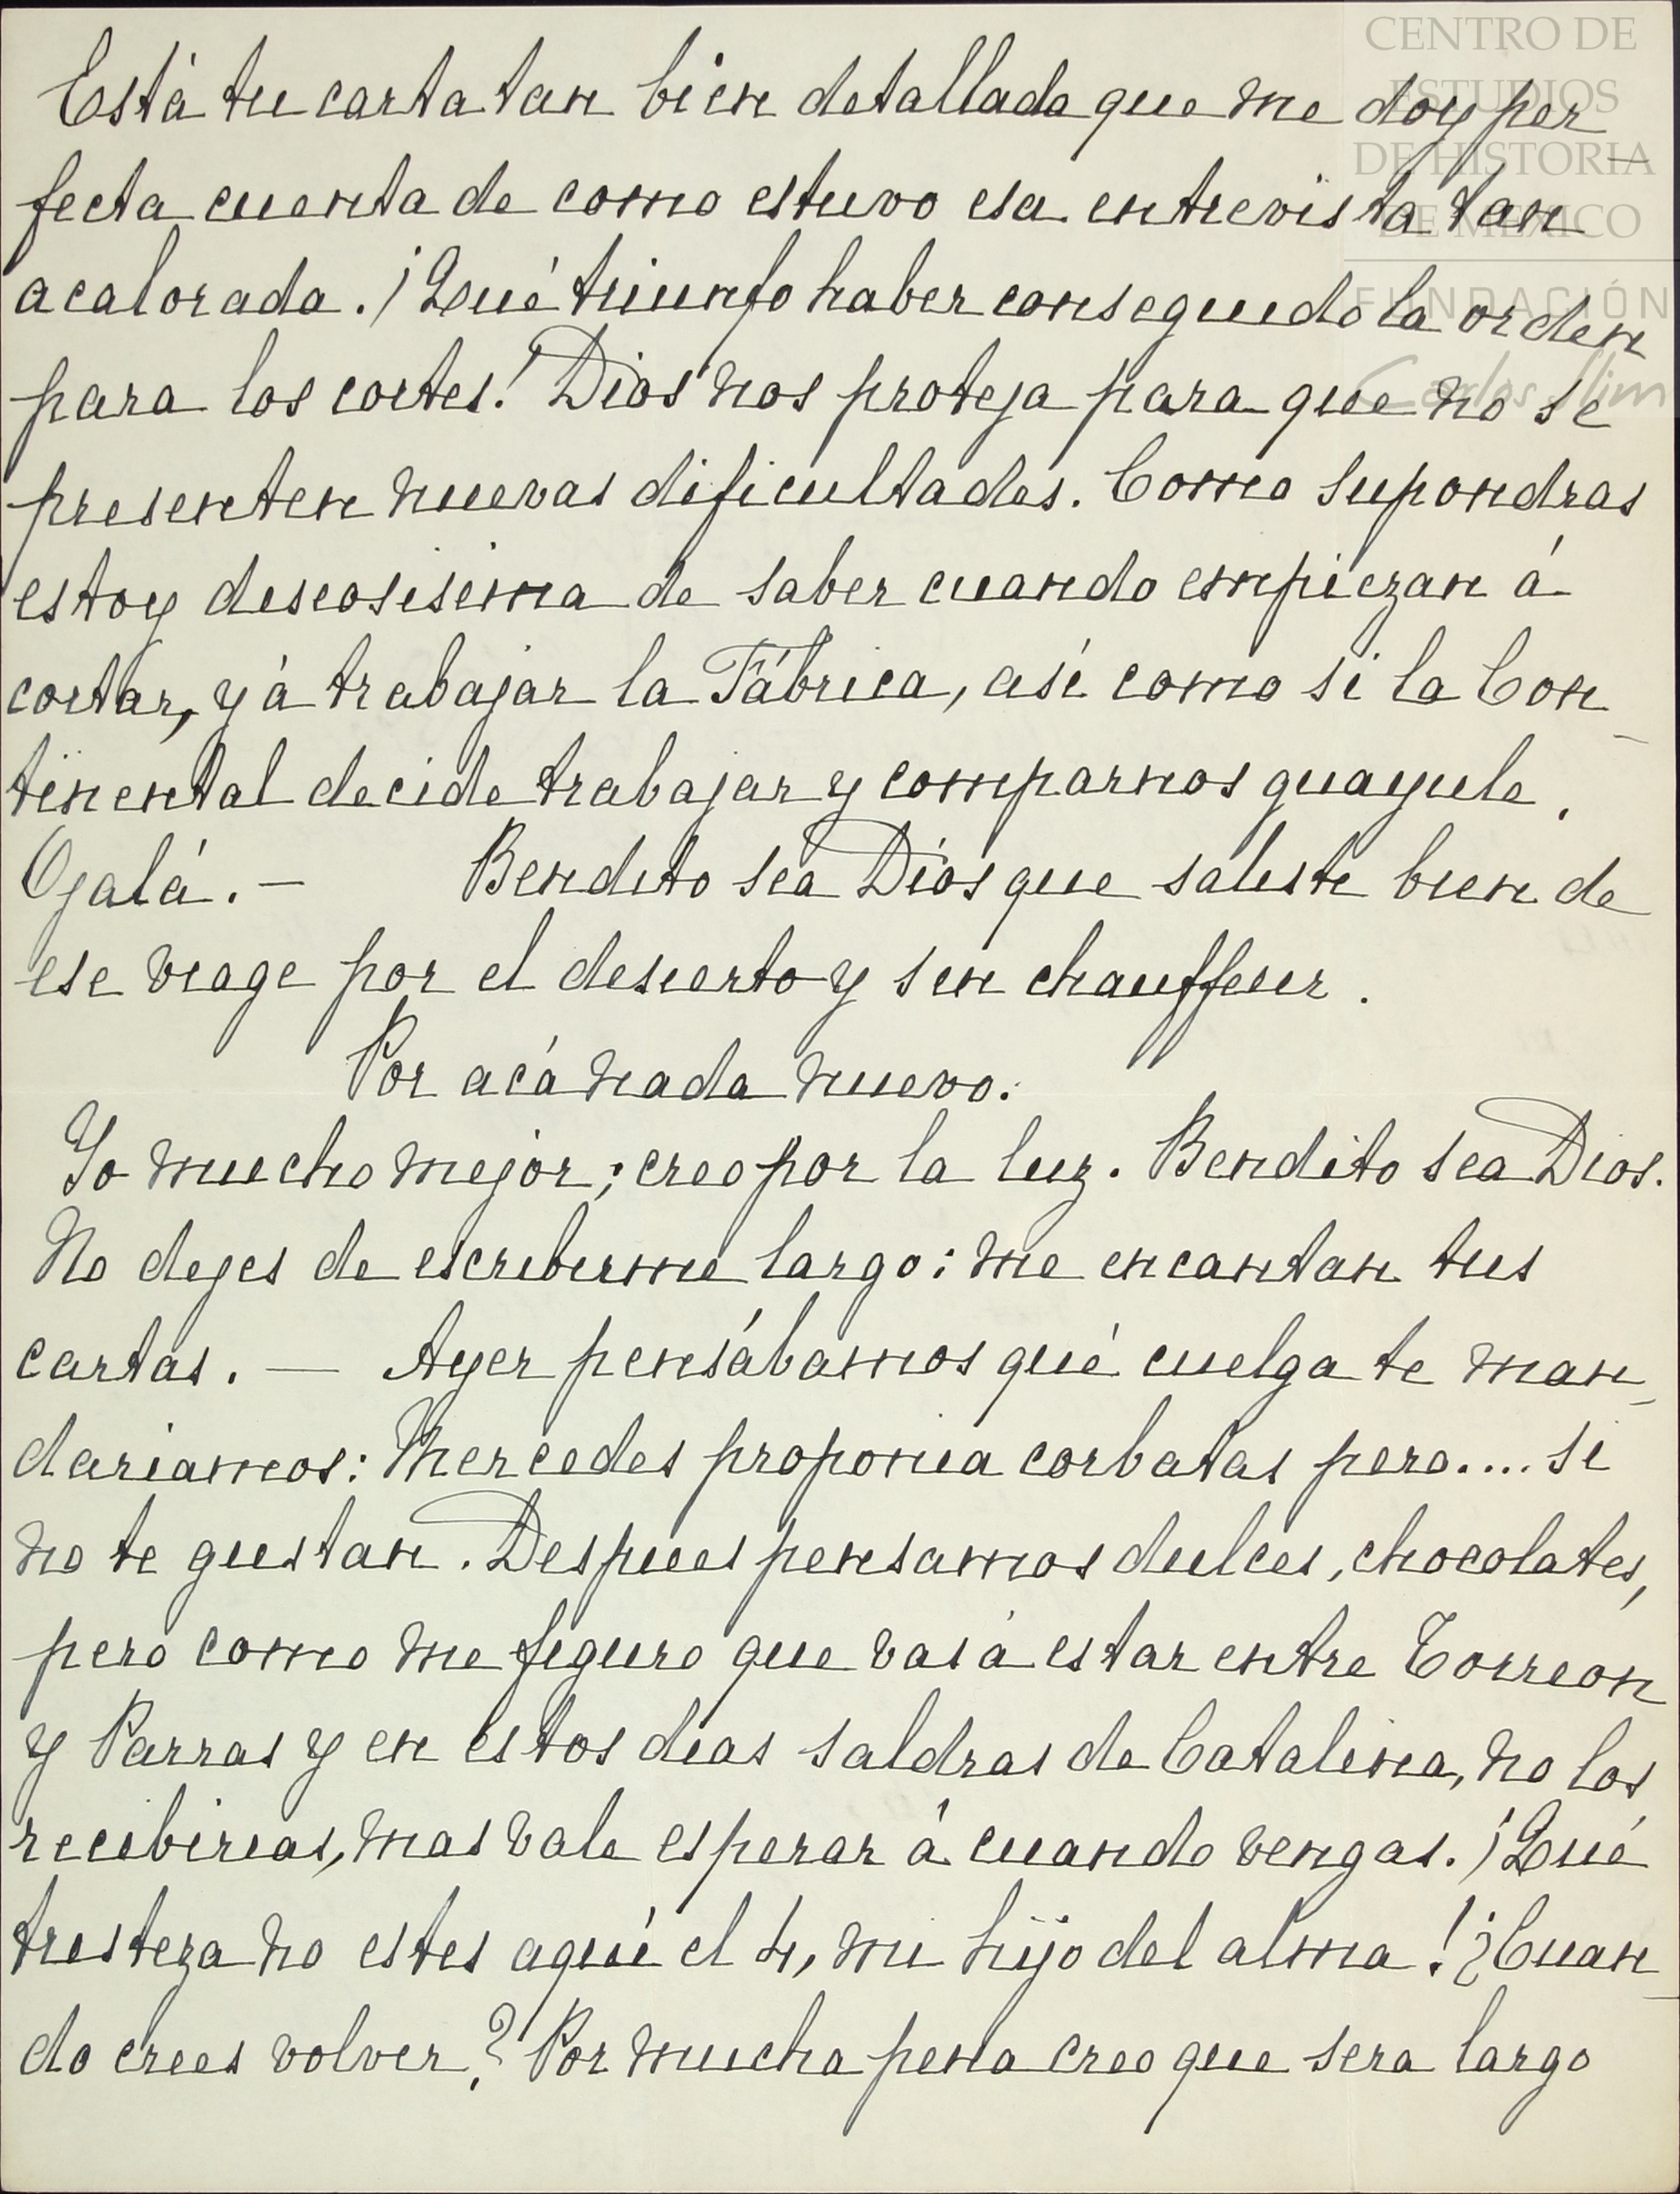 CENTRO DE
ESTUDIOS
DE HISTORIA
DE MÉXICO
FUNDACIÓN
Carlos Slim
Está tu carta tan bien detallada que me doy per-
fecta cuenta de como estuvo esa entrevista tan
acalorada. ¡Qué triunfo haber conseguido la orden
para los cortes! Dios nos proteja para que no se
presenten nuevas dificultades. Como supondras
estoy deseosisima de saber cuando empiezan á
cortar, y á trabajar la Fábrica, asi como si la Con-
tinental decide trabajar y comparnos guayule.
Ojalá. — Bendito sea Dios que saliste bien de
ese viage por el desierto y sin chauffeur.
Por acá nada nuevo.
Yo mucho mejor; creo por la luz. Bendito sea Dios.
No dejes de escribirme largo: me encantan tus
cartas. — Ayer pensábamos qué cuelga te man-
dariamos: Mercedes proponia corbatas pero.... si
no te gustan. Despues pensamos dulces, chocolates,
pero como me figuro que vas á estar entre Torreon
y Parras y en estos dias saldras de Catalina, no los
recibirias, mas vale esperar á cuando vengas. ¡Qué
tristeza no estes aquí el 4, mi hijo del alma! ¿Cuan-
do crees volver? Por mucha pena creo que sera largo